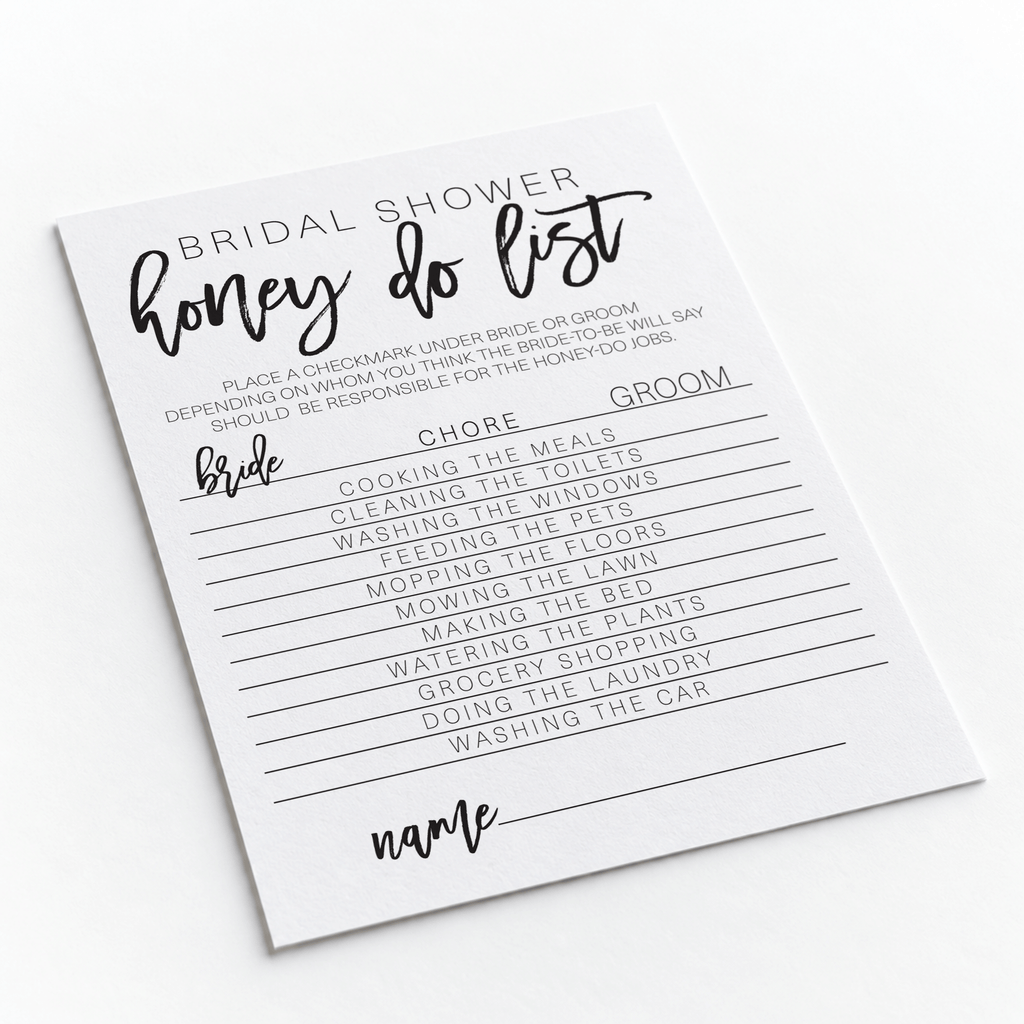 BRIDAL SHOWER
honey do list
PLACE A CHECKMARK UNDER BRIDE OR GROOM
DEPENDING ON WHOM YOU THINK THE BRIDE-TO-BE WILL SAY
SHOULD BE RESPONSIBLE FOR THE HONEY-DO JOBS.
bride CHORE GROOM
COOKING THE MEALS
CLEANING THE TOILETS
WASHING THE WINDOWS
FEEDING THE PETS
MOPPING THE FLOORS
MOWING THE LAWN
MAKING THE BED
WATERING THE PLANTS
GROCERY SHOPPING
DOING THE LAUNDRY
WASHING THE CAR
name